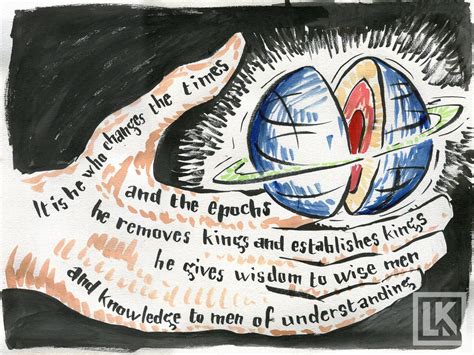 It is he who changes the times
and the epochs
he removes kings and establishes kings
he gives wisdom to wise men
and knowledge to men of understanding
LK